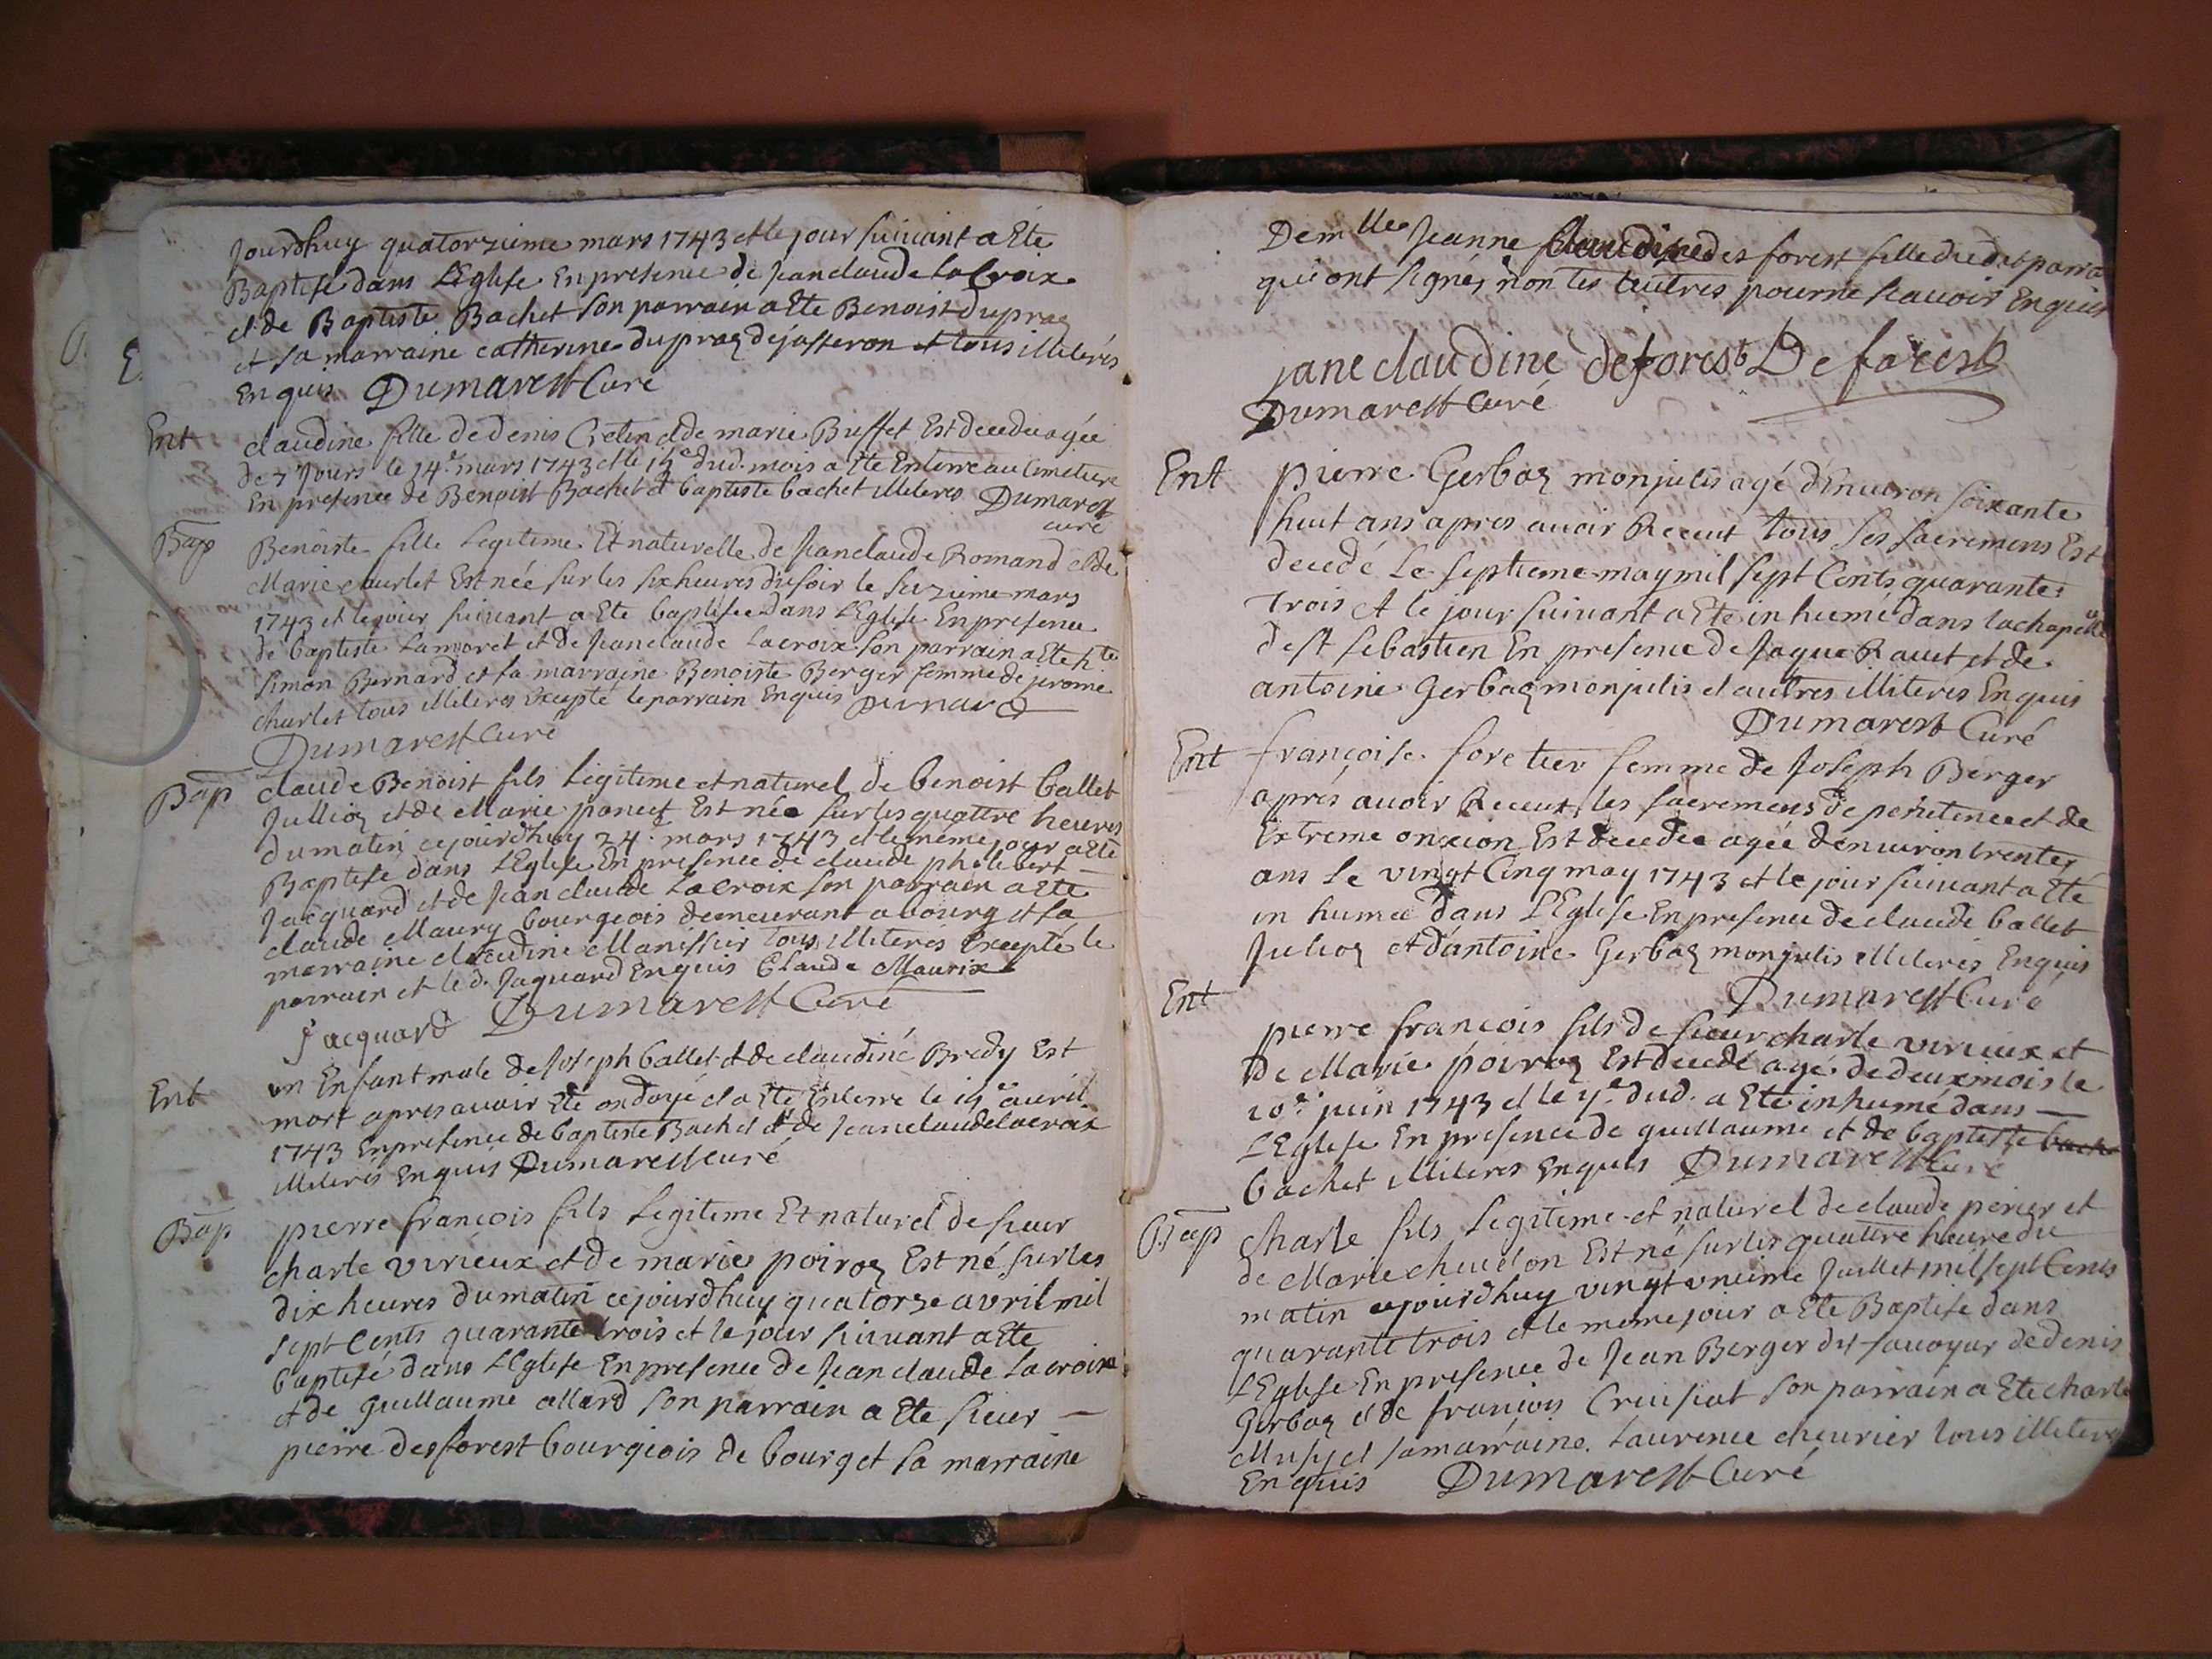 Jourdhuy quatorzieme mars 1743 et le jour suivant a Ete
Baptisé dans L'Eglise En presence de Jean claude La Croix
et de Baptiste Bachet son parrain a Ete Benoist dupraz
et sa marraine catherine dupraz de jasseron et tous illiterés
Enquis Dumarest Curé
Ent
claudine fille de Denis Cretin et de marie Buffet Est decedu agée
de 7 Jours le 14e mars 1743 et le 15e dud. mois a Ete Enterre au Cimetiere
En presence de Benoist Bachet et baptiste bachet illiteres Dumarest
curé
Bap
Benoiste fille Legitime Et naturelle de Jean claude Romand et de
Marie churlet Est née sur les six heures du soir le seizieme mars
1743 et le jour suivant a Ete baptisée dans L'Eglise En presence
de baptiste Lamoret et de Jean claude Lacroix son parrain a Ete hte
simon Bernard et sa marraine Benoiste Berger femme de jerome
churlet tous illiteres Excepté le parrain Enquis Bernard
Dumarest Curé
Bap
claude Benoist fils legitime et naturel de benoist ballet
Jullioz et de Marie poncet Est née sur les quattre heures
du matin cejourdhuy 24. mars 1743 et le même jour a Ete
Baptisé dans L'Eglise En presence de claude philibert
Jacquard et de Jean claude Lacroix son parrain a Ete
claude Maury bourgeois demeurant a bourg et sa
marraine claudine Manissier tous illiterés Excepté le
parrain et le d. Jaquard Enquis Claude Maurix
Jacquard Dumarest Curé
Ent
un Enfant male de Joseph ballet et de claudine Bredy Est
mort apres avoir Ete ondoyé et a Ete Enterre le 15e avril
1743 En presence de baptiste Bachet et de Jean claude lacroix
illiterés Enquis Dumarest curé
Bap
pierre francois fils Legitime Et naturel de sieur
charle virieux et de marie poiroz Est né sur les
dix heures du matin cejourdhuy quatorze avril mil
sept Cents quarante trois et le jour suivant a Ete
baptisé dans L'Eglise En presence de Jean claude Lacroix
et de guillaume allard son parrain a Ete sieur
pierre desforest bourgeois de bourg et sa marraine
Demlle Jeanne claudine des forest fille dudit parra
qui ont signé, non les autres pour ne scavoir Enquis
jane claudine deforest De forest
Dumarest Curé
Ent
pierre Gerbaz monjulis agé d'Environ soixante
huit ans apres avoir Receut tous ses sacremens Est
decedé Le septieme may mil sept Cents quarante
trois et le jour suivant a Ete inhumé dans la chapelle
de st sebastien En presence de Jaque Ravet et de
antoine Gerbaz monjulis et autres illiteres Enquis
Dumarest Curé
Ent
françoise foretier femme de Joseph Berger
aprés avoir Receut les sacremens de penitence et de
Extreme onxion Est decedée agée denviron trente
ans Le vingt Cinq may 1743 et le jour suivant a Eté
inhumée dans L'Eglise En presence de claude ballet
Julioz et d'antoine Gerbaz monjulis illiterés Enquis
Dumarest Curé
Ent
pierre francois fils de sieur charle virieux et
de Marie poiroz Est decedé agé de deux mois le
10e juin 1743 et le y.e dud. a Ete inhumé dans
L'Eglise En presence de guillaume et de baptiste bache
bachet illiteres Enquis Dumarest Curé
Bap
charle fils Legitime et naturel de claude perier et
de Marie chudon Est né sur les quatre heure du
matin cejourdhuy vingt unieme Juillet mil sept Cents
quarante trois et le meme jour a Ete Baptisé dans
L'Eglise En presence de Jean Berger dit savoyar de denis
Gerbaz et de francois Creusat son parrain a Ete charle
Musy et sa marraine Laurence cheurier tous illiteres
Enquis Dumarest Curé